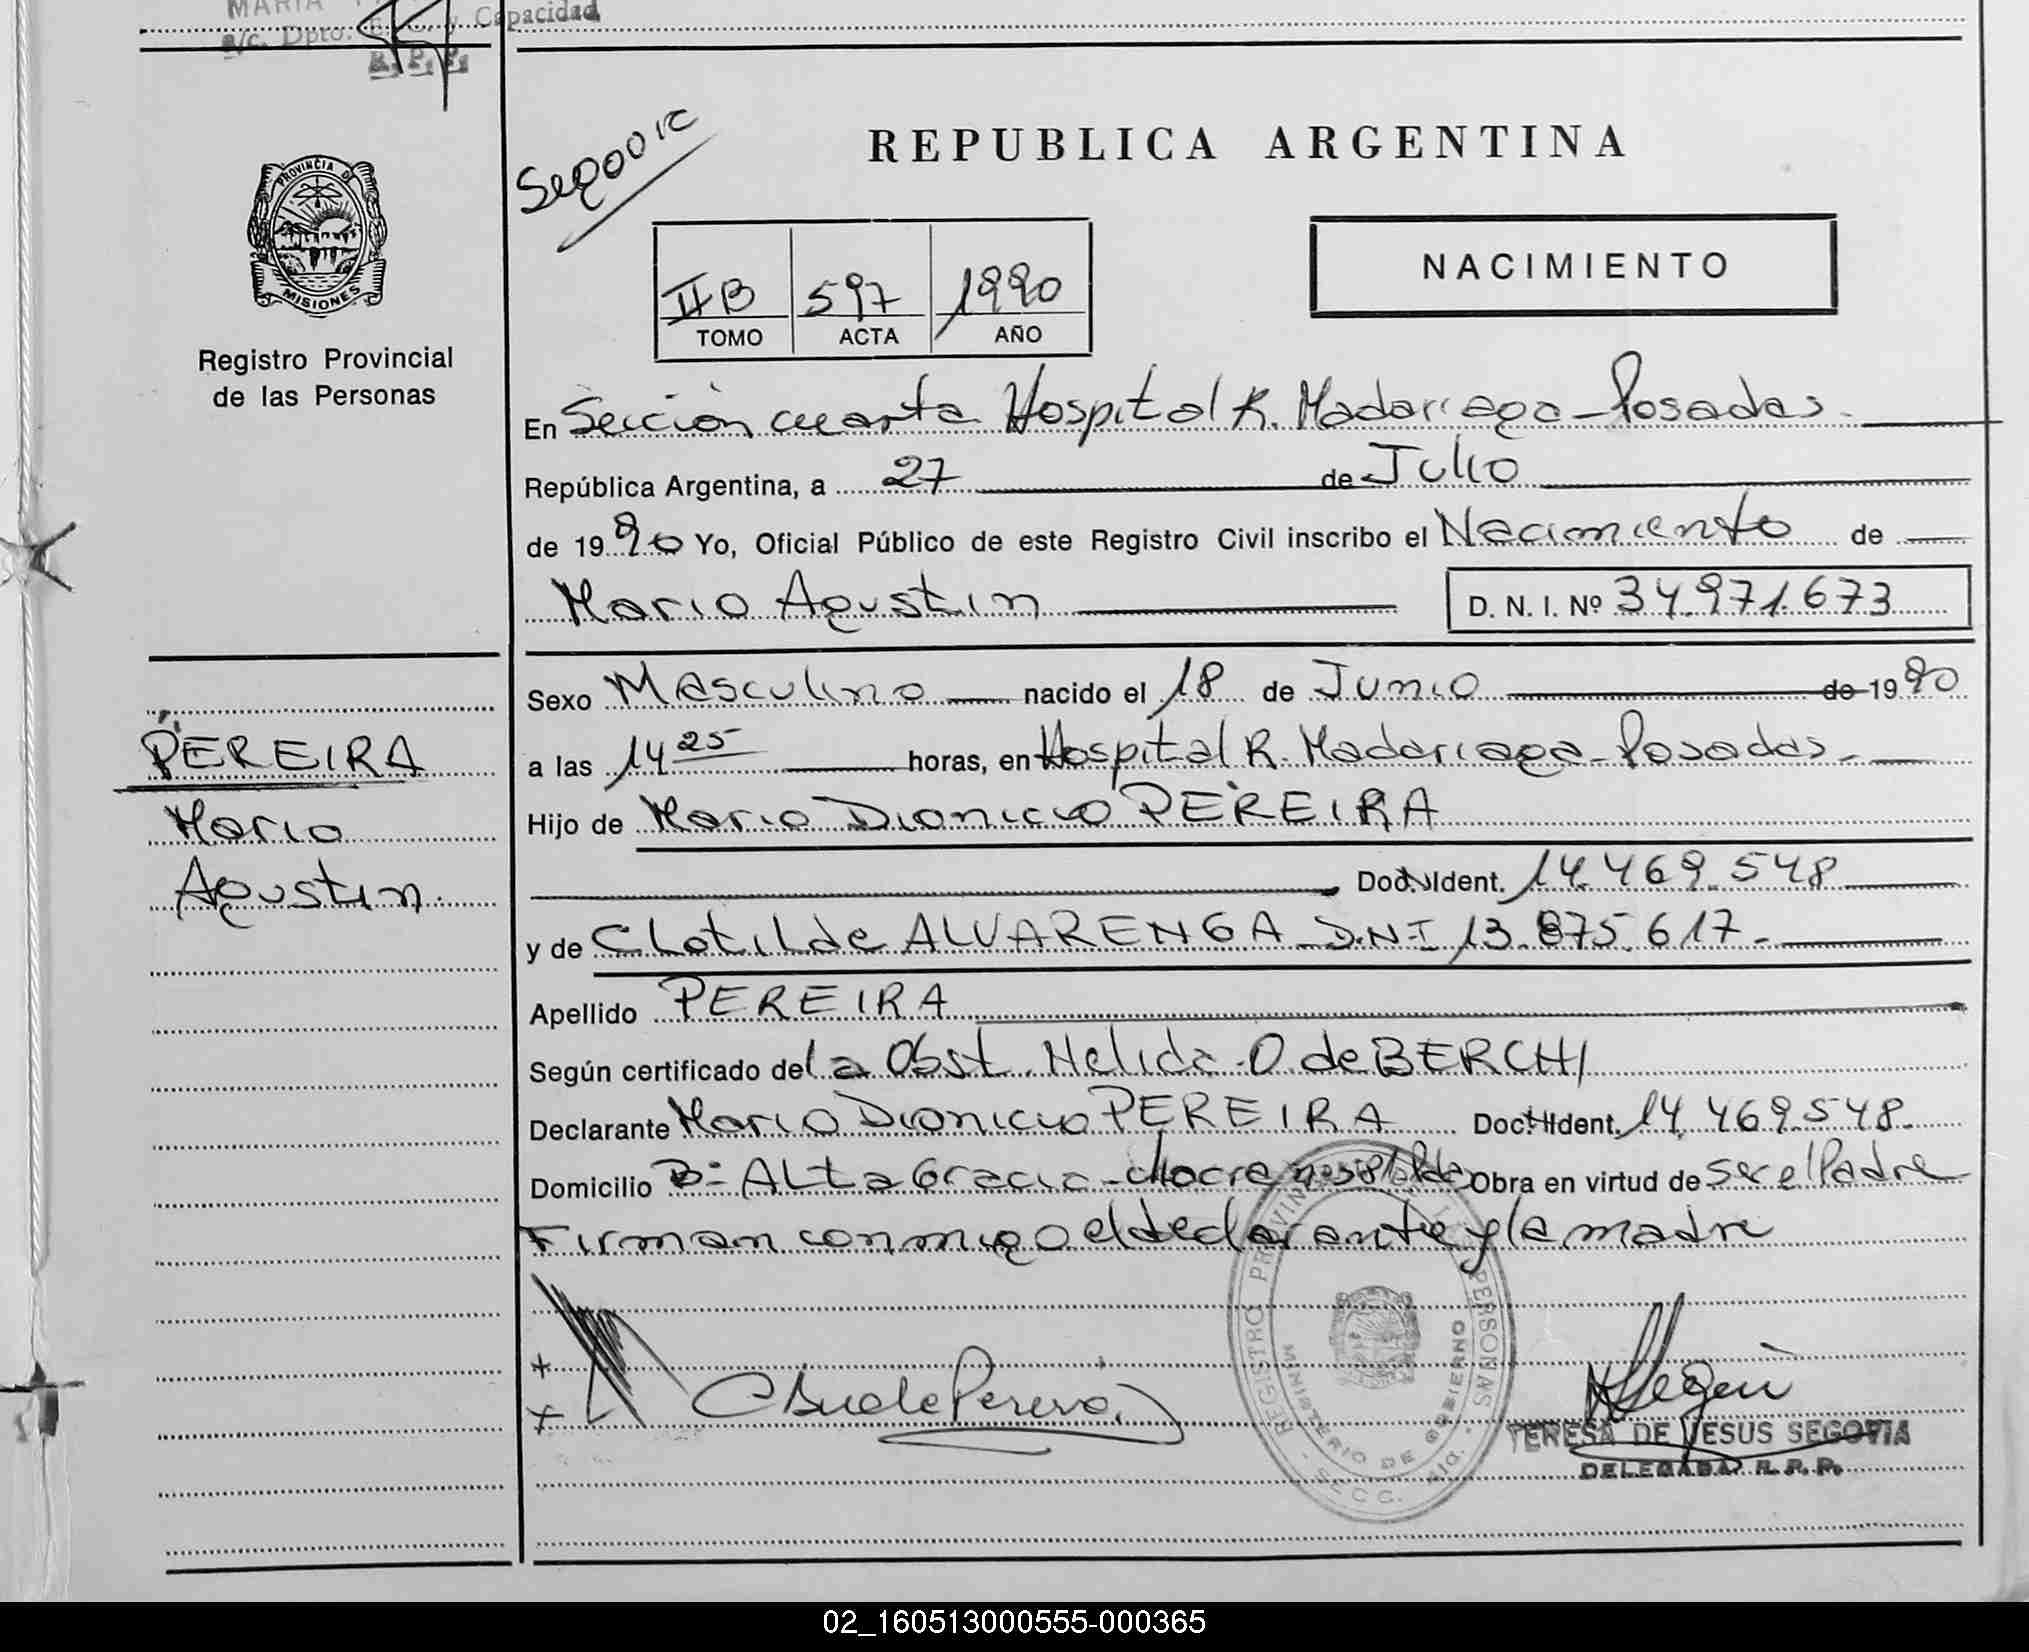 MARIA
a/c. Dpto. E. C. y Capacidad
R. P. P.
PROVINCIA DE
MISIONES
Registro Provincial
de las Personas
PEREIRA
Mario
Agustin.
REPUBLICA ARGENTINA
NACIMIENTO
II B 597 1990
TOMO ACTA AÑO
En Sección cuarta Hospital R. Madariaga - Posadas.
República Argentina, a 27 de Julio
de 1990 Yo, Oficial Público de este Registro Civil inscribo el Nacimiento de
Mario Agustin D. N. I. Nº 34.971.673
Sexo Masculino nacido el 18 de Junio de 1990
a las 14 25 horas, en Hospital R. Madariaga - Posadas.
Hijo de Mario Dionicio PEREIRA
Doc. Ident. 14.469.548
y de Clotilde ALVARENGA D.N.I 13.875.617.
Apellido PEREIRA
Según certificado de la Obst. Nelida O. de BERCHI
Declarante Mario Dionicio PEREIRA Doc. Ident. 14.469.548.
Domicilio Bº Alta Gracia - Obra en virtud de ser el Padre
Firman conmigo el declarante y la madre
REGISTRO PROVINCIAL PERSONAS
MINISTERIO DE GOBIERNO
SECC.
TERESA DE JESUS SEGOVIA
DELEGADA R. P. P.
02_160513000555-000365